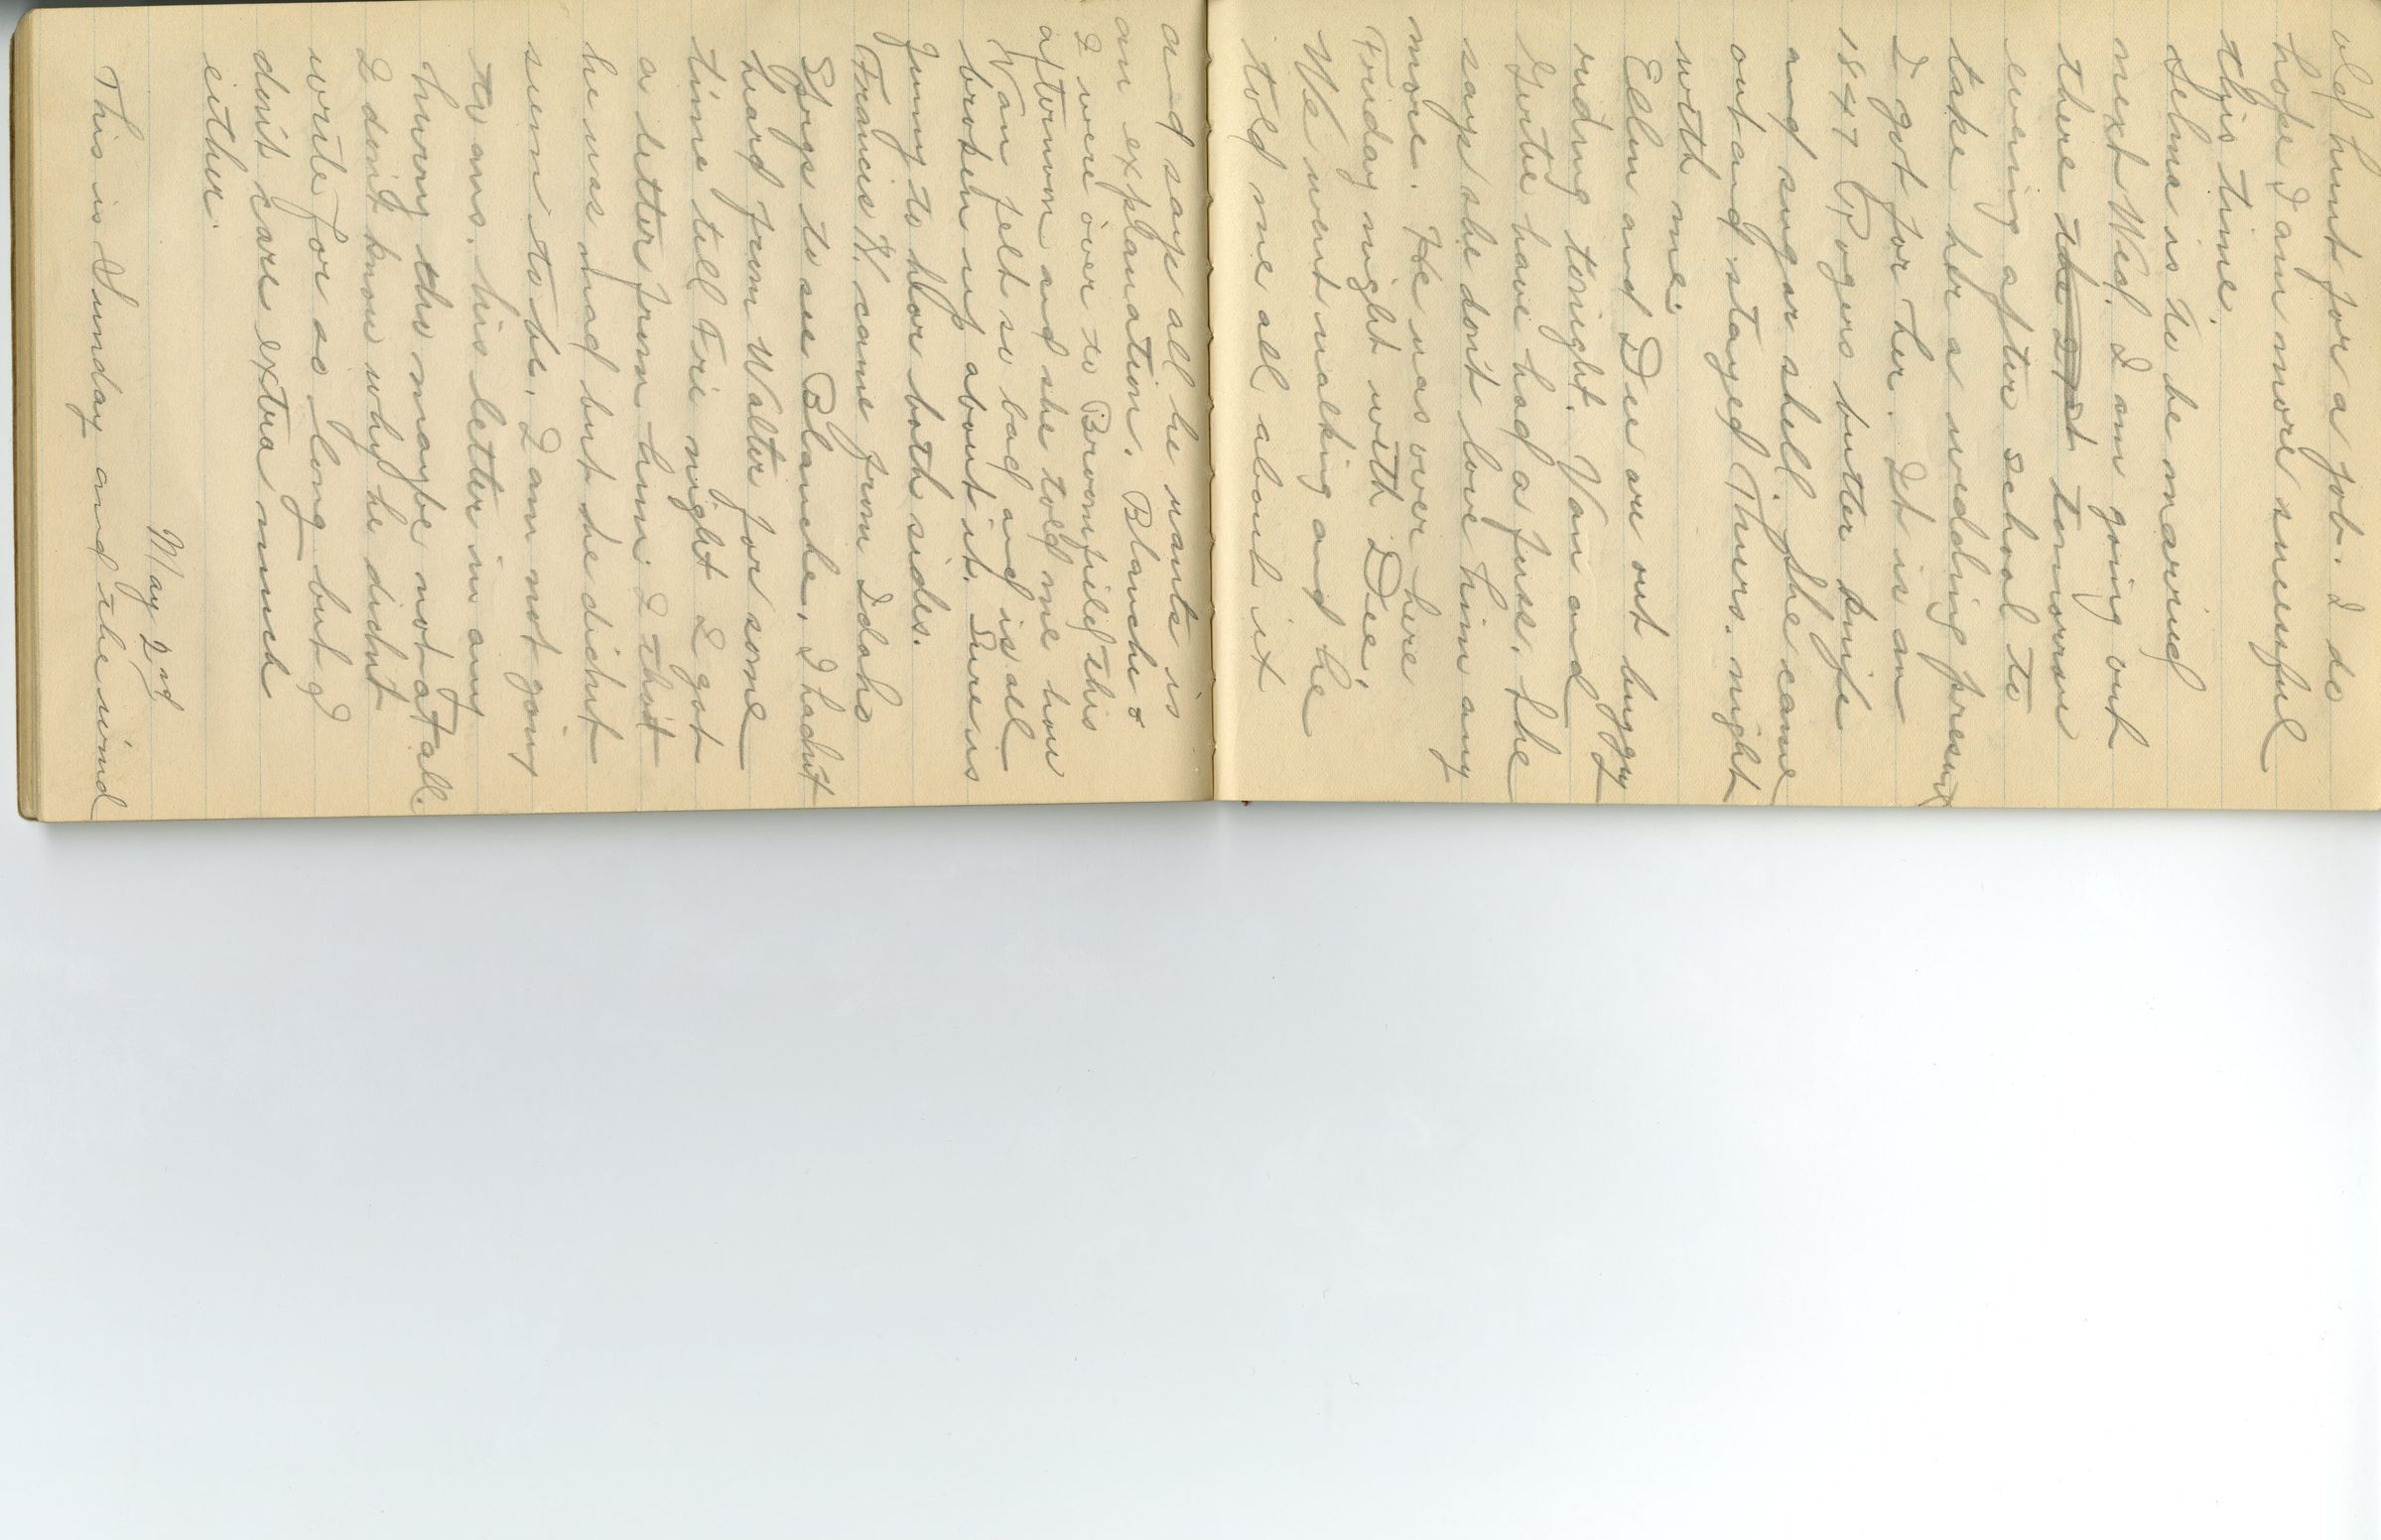 old hunt for a job. I do
hope I am more sucessful
this time.
Selma is to be married
next Wed. I am going out
there tomorrow
evening after school to
take her a wedding present
I got for her. It is an
1847 Rogers butter knife
and sugar shell. She came
out and stayed Thurs. night
with me.
Ellen and Du are out buggy
riding tonight. Van and
Gertie have had a fuss. She
says she don't love him any
more. He was over here
Friday night with Dee.
We went walking and he
told me all about it
and says all he wants is
an explanation. Blanche &
I were over to Broomfield this
afternoon and she told me how
Van felt so bad and is all
broken up about it. Sure is
funny to hear both sides.
Francis K. came from Idaho
Spgs to see Blanche. I hadn't
heard from Walter for some
time till Fri night I got
a letter from him. I thot
he was mad but he didnt
seem to be. I am not going
to ans. his letter in any
hurry tho maybe not at all.
I don't know why he didnt
write for so long but I
don't care extra much
either.
May 2nd
This is Sunday and the wind